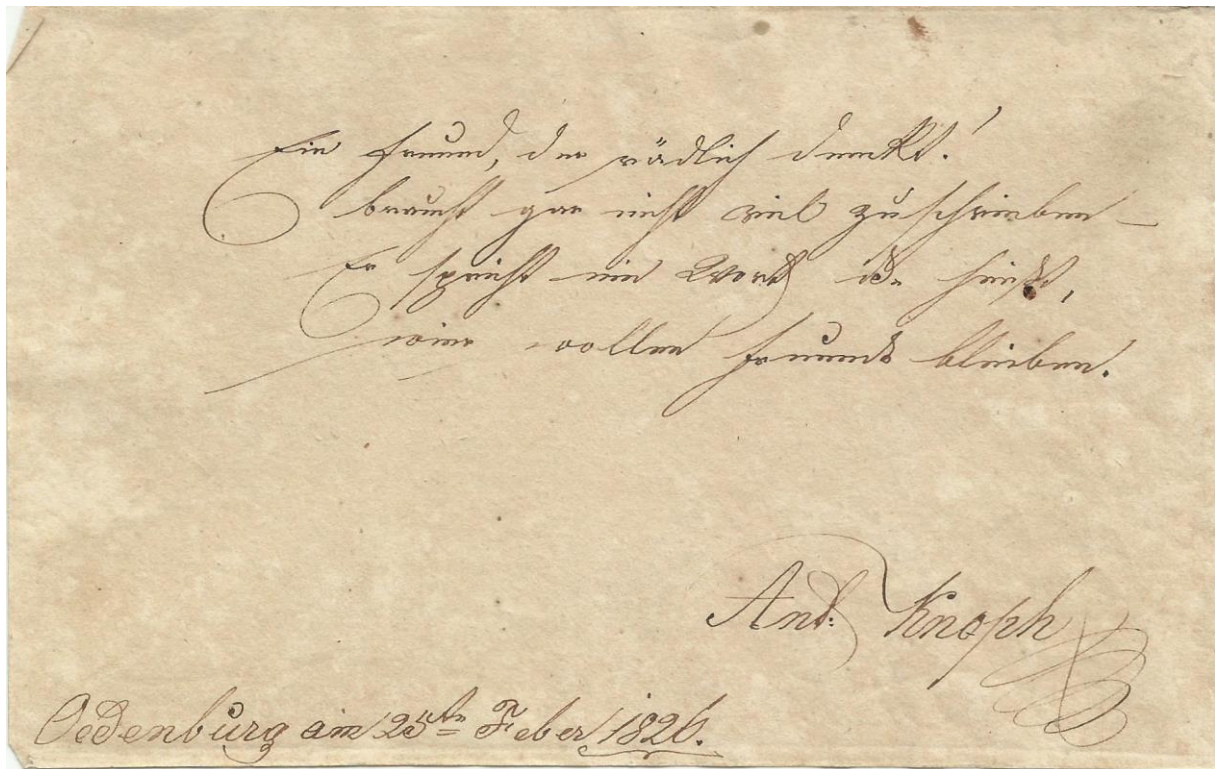 Ein Freund, der rädlich denkt!
braucht gar nicht viel zuschreiben –
Er spricht ein Wort das heist,
wier wollen Freund bleiben.
Ant: Knoph
Oedenburg am 25tn Feber 1826.